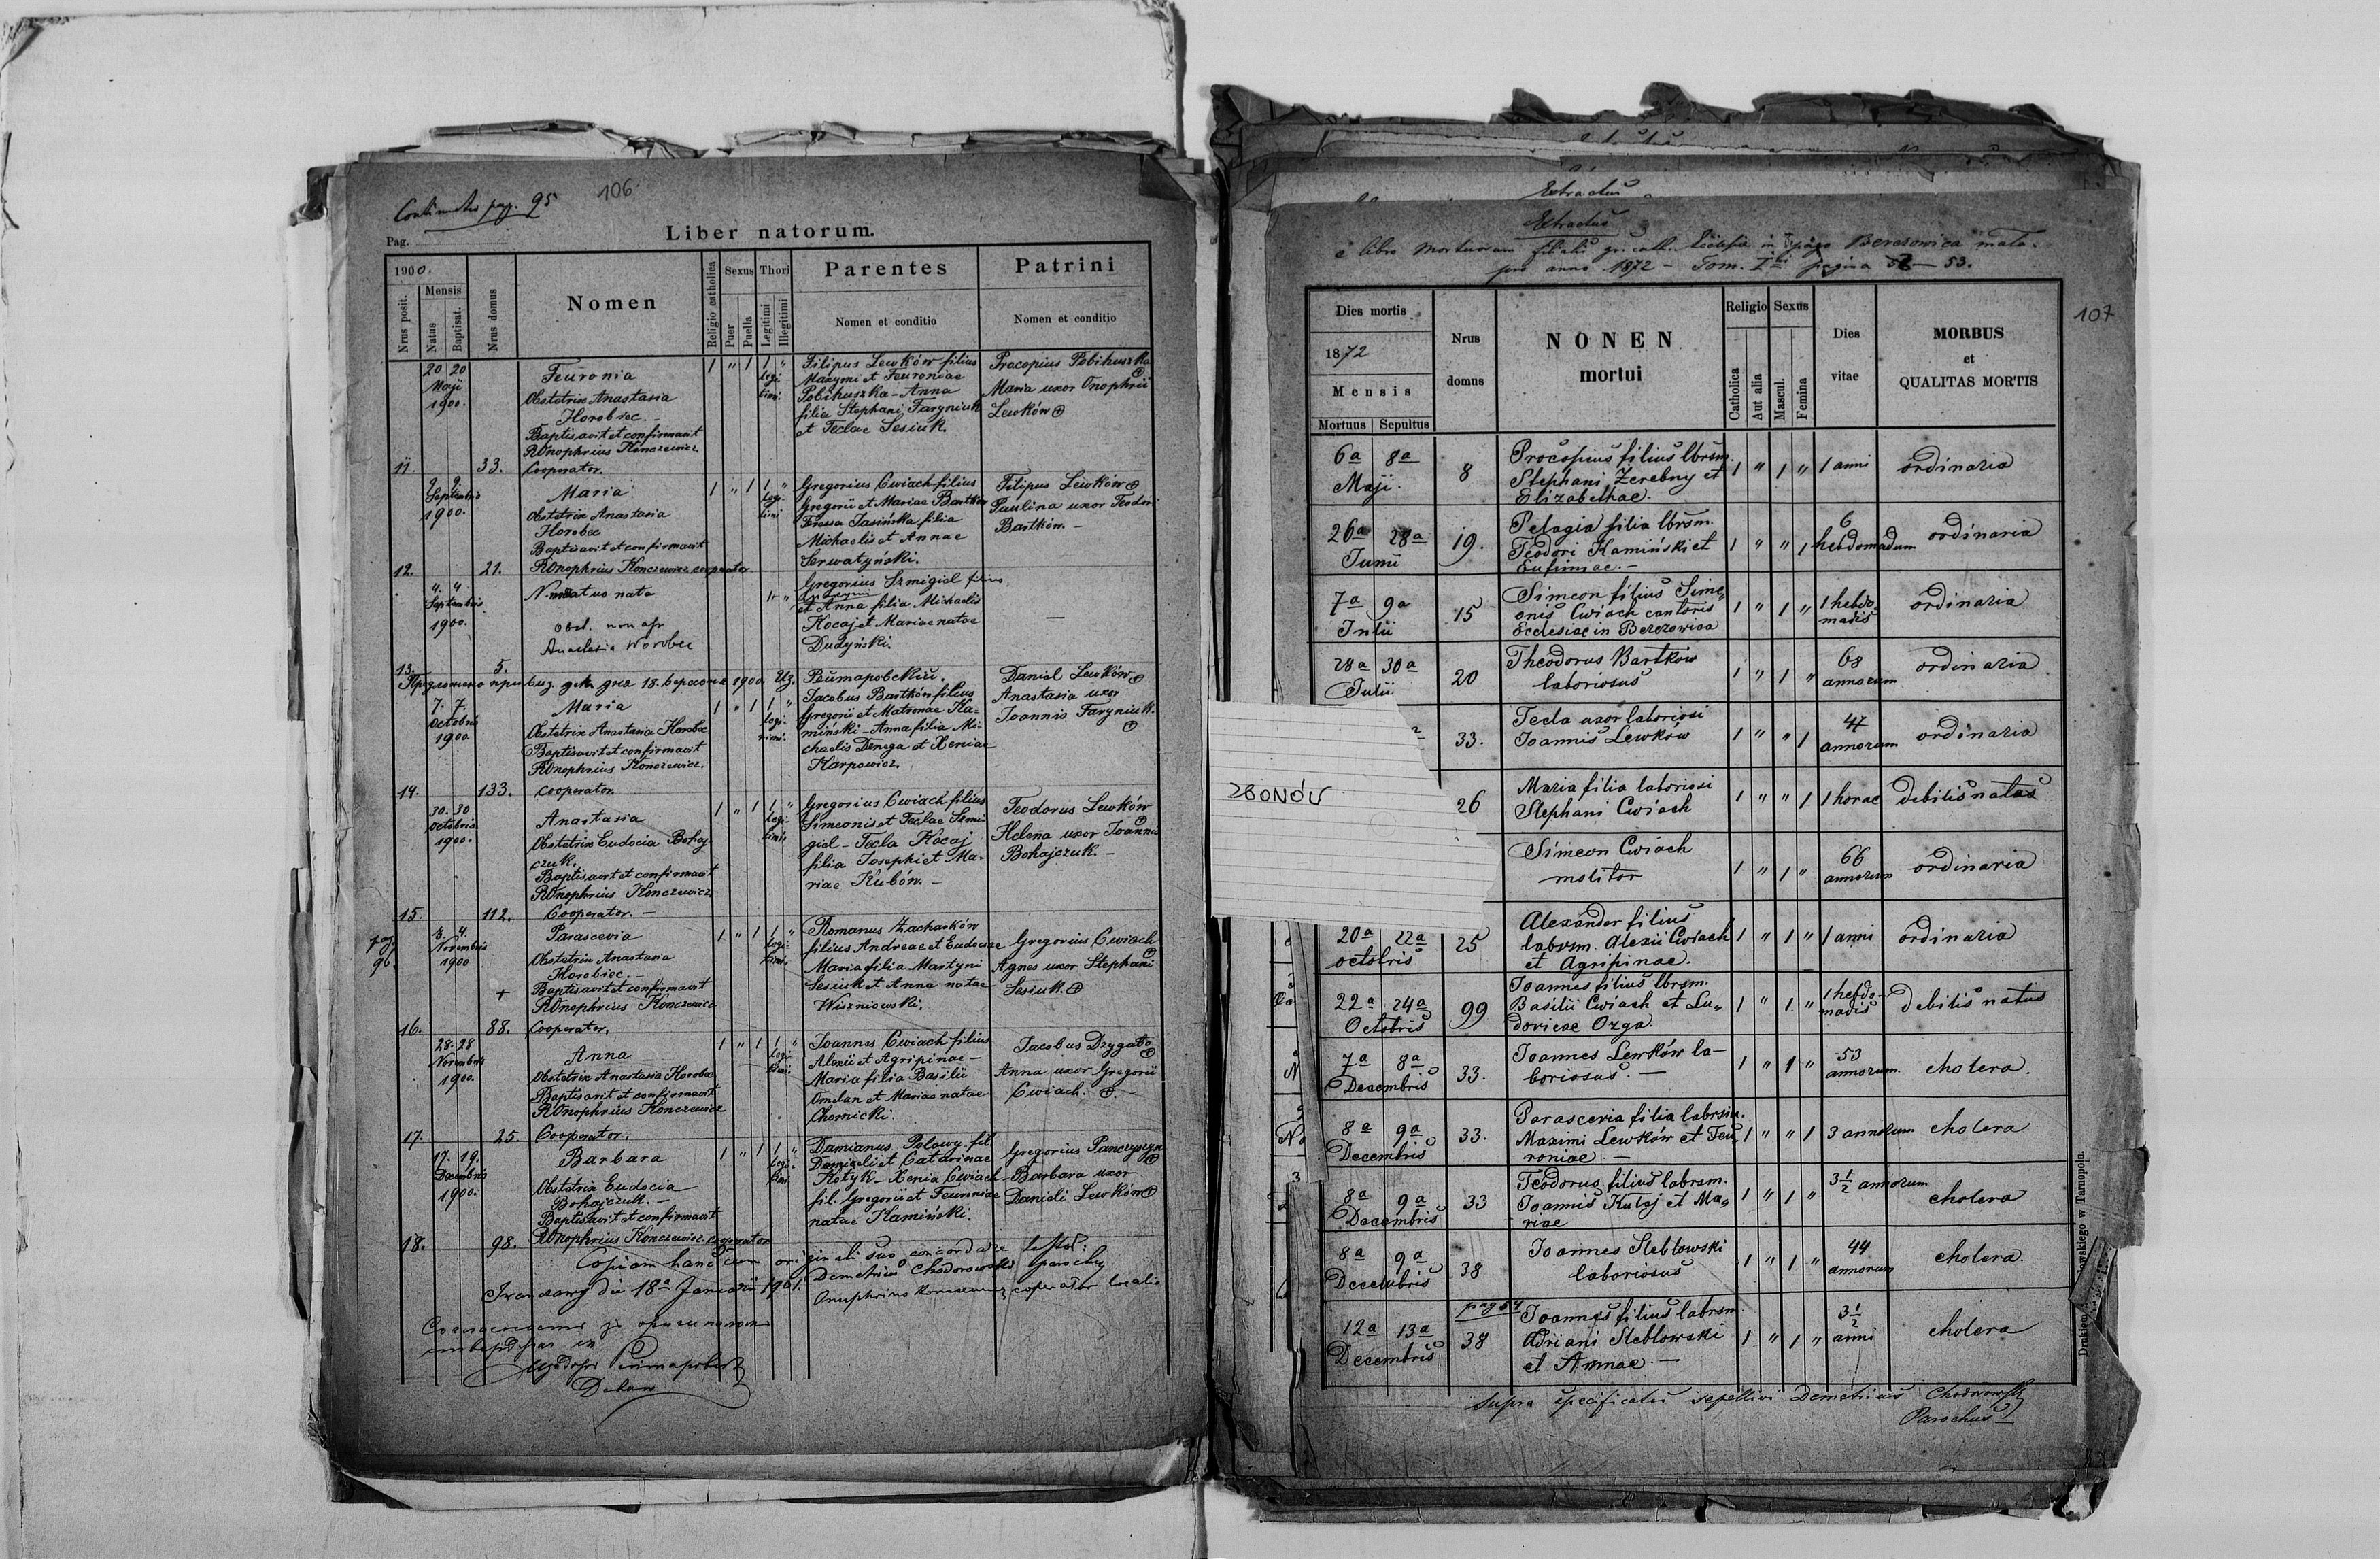 106.
Continuatio pag. 95
Pag.
Liber natorum.
1900.
Nrus posit.
Mensis
Natus
Baptisat.
Nrus domus
Nomen
Religio catholica
Sexus
Puer
Puella
Thori
Legitimi
Illegitimi
Parentes
Nomen et conditio
Patrini
Nomen et conditio
11.
20 20
Maji
1900.
33.
Feuronia
Obstetrix Anastasia
Horobiec.
Baptisavit et confirmavit
Onophrius Konczewicz
Cooperator.
1 " 1 1 "
Legi-
timi.
Filipus Lewków filius
Maxymi et Feuroniae
Pobihuszka - Anna
filia Stephani Faryniuk
et Teclae Sesiuk.
Procopius Pobihuszka
Maria uxor Onophrii
Lewków
12.
9. 9.
Septembris
1900.
21.
Maria
Obstetrix Anastasia
Horobec
Baptisavit et confirmavit
Onophrius Konczewicz cooperator
1 " 1 1 "
Legi-
timi
Gregorius Cwiach filius
Gregorii et Mariae Bartków
Teressa Jasińska filia
Michaelis et Annae
Serwatyński.
Filipus Lewków
Paulina uxor Teodori
Bartków. -
13.
4. 4
Septembris
1900.
5.
nata
Obst. non apr
Anastasia Worobec
Gregorius Szmigiel filius
et Anna filia Michaelis
Kocaj et Mariae natae
Dudyński.
—
14.
7. 7.
Octobris
1900.
133.
Maria
Obstetrix Anastasia Horobec
Baptisavit et confirmavit
Onophrius Konczewicz.
cooperator.
1 " 1 1 "
Legi-
timi.
Jacobus Bartków filius
Gregorii et Matronae Ka-
miński - Anna filia Mi-
chaelis Denega et Xeniae
Karpowicz.
Daniel Lewków
Anastasia uxor
Joannis Faryniuk.
15.
30. 30
Octobris
1900.
112.
Anastasia
Obstetrix Eudocia Bohaj
czuk.
Baptisavit et confirmavit
Onophrius Konczewicz
Cooperator. -
1 " 1 1 "
Legi-
timi.
Gregorius Cwiach filius
Simeonis et Teclae Szmi
giel - Tecla Kocaj
filia Josephi et Ma-
riae Kubów. -
Teodorus Lewków
Helena uxor Joannis
Bohajczuk. -
pag.
96.
16.
3. 4.
Novembris
1900
88.
Parascevia
Obstetrix Anastasia
Horobiec. -
Baptisavit et confirmavit
Onophrius Konczewicz
Cooperator.
1 " 1 1 "
Legi-
timi.
Romanus Zacharków
filius Andreae et Eudociae
Maria filia Martyni
Sesiuk et Anna natae
Wiszniowski.
Gregorius Cwiach
Agnes uxor Stephani
Sesiuk.
17.
28. 28
Novembris
1900.
25.
Anna
Obstetrix Anastasia Horobec
Baptisavit et confirmavit
Onophrius Konczewicz
Cooperator.
1 " 1 1 "
Legi-
timi.
Joannes Cwiach filius
Alexii et Agripinae -
Maria filia Basilii
Omelan et Mariae natae
Chomicki.
Jacobus Drygało
Anna uxor Gregorii
Cwiach.
18.
17. 19.
Decembris
1900.
98.
Barbara
Obstetrix Eudocia
Bohajczuk. -
Baptisavit et confirmavit
Onophrius Konczewicz cooperator
1 " 1 1 "
Legi-
timi.
Damianus Polowy fil.
Danieli et Catarinae
Kotyk - Xenia Cwiach
fil. Gregorii et Feuroniae
natae Kamiński.
Gregorius Panczyszyn
Barbara uxor
Danieli Lewków
Copiam hanc cum originali suo concordare testor:
Demetrius Chodorowski parochus
Iwanczany die 18a Januarii 1901.
Onuphrius Konczewicz cooperator localis
Extractus
107
Extractus
e libro Mortuorum filialis gr. cath. Ecclesiae in pago Berezowica mała.
pro anno 1872 - Tom. I pagina 52 - 53.
Dies mortis
1872
Mensis
Mortuus
Sepultus
Nrus
domus
NONEN
mortui
Religio
Catholica
Aut alia
Sexus
Mascul.
Femina
Dies
vitae
MORBUS
et
QUALITAS MORTIS
6a 8a
Maji.
8
Procopius filius lbrsm.
Stephani Żerebny et
Elizabethae.
1 " 1 "
1 anni
ordinaria
26a 28a
Junii
19.
Pelagia filia lbrsm.
Teodori Kamiński et
Eufimiae. -
1 " " 1
6
hebdomadum
ordinaria
7a 9a
Julii
15
Simeon filius Sime„
onis Cwiach cantoris
Ecclesiae in Berezowica
1 " 1 "
1 hebdo-
madis
ordinaria
28a 30a
Julii
20
Theodorus Bartków
laboriosus
1 " 1 "
68
annorum
ordinaria
33.
Tecla uxor laboriosi
Joannis Lewków
1 " " 1
47
annorum
ordinaria
ZBONÓV
26
Maria filia laboriosi
Stephani Cwiach
1 " " 1
1 horae
debilis natus
Simeon Cwiach
molitor
1 " 1 "
66
annorum
ordinaria
20a 22a
octobris
25
Alexander filius
labrsm. Alexii Cwiach
et Agripinae.
1 " 1 "
1 anni
ordinaria
22a 24a
Octobris
99
Joannes filius lbrsm.
Basilii Cwiach et Lu„
doricae Ozga.
1 " 1 "
1 hebdo-
madis
Debilis natus
7a 8a
Decembris
33.
Joannes Lewków la-
boriosus. -
1 " 1 "
53
annorum.
cholera.
8a 9a
Decembris
33.
Parascevia filia labrsm.
Maximi Lewków et Feu
roniae. -
1 " " 1
3 annorum
cholera
8a 9a
Decembris
33
Teodorus filius labrsm.
Joannis Kulaj et Ma„
riae
1 " 1 "
3½ annorum
cholera
8a 9a
Decembris
38
Joannes Steblowski
laboriosus
1 " 1 "
44
annorum
cholera.
pag 54
12a 13a
Decembris
38
Joannes filius labrsm.
Adriani Steblowski
et Annae. -
1 " 1 "
3½
anni
cholera
Supra specificatos sepelivi Demetrius Chodorowski
Parochus